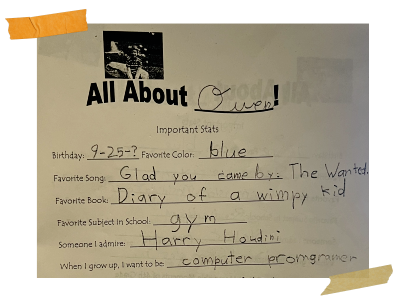 All About Owen!
Important Stats
Birthday: 9-25-? Favorite Color: blue
Favorite Song: Glad you came by: The Wanted.
Favorite Book: Diary of a wimpy kid
Favorite Subject in School: gym
Someone I admire: Harry Houdini
When I grow up, I want to be: computer promgramer